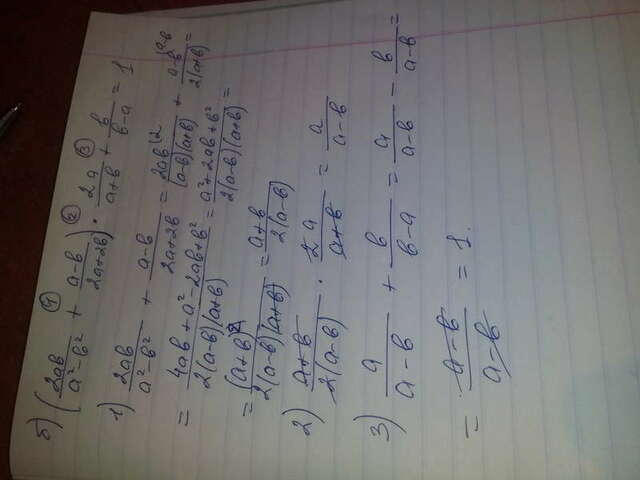 б) (2ab/(a²-b²) + (a-b)/(2a+2b)) · 2a/(a+b) + b/(b-a) = 1
① ② ③
1) 2ab/(a²-b²) + (a-b)/(2a+2b) = 2ab\2/((a-b)(a+b)) + (a-b)\a-b/(2(a+b)) =
= (4ab+a²-2ab+b²)/(2(a-b)(a+b)) = (a²+2ab+b²)/(2(a-b)(a+b)) =
= (a+b)²/(2(a-b)(a+b)) = (a+b)/(2(a-b))
2) (a+b)/(2(a-b)) · 2a/(a+b) = a/(a-b)
3) a/(a-b) + b/(b-a) = a/(a-b) - b/(a-b) =
= (a-b)/(a-b) = 1.